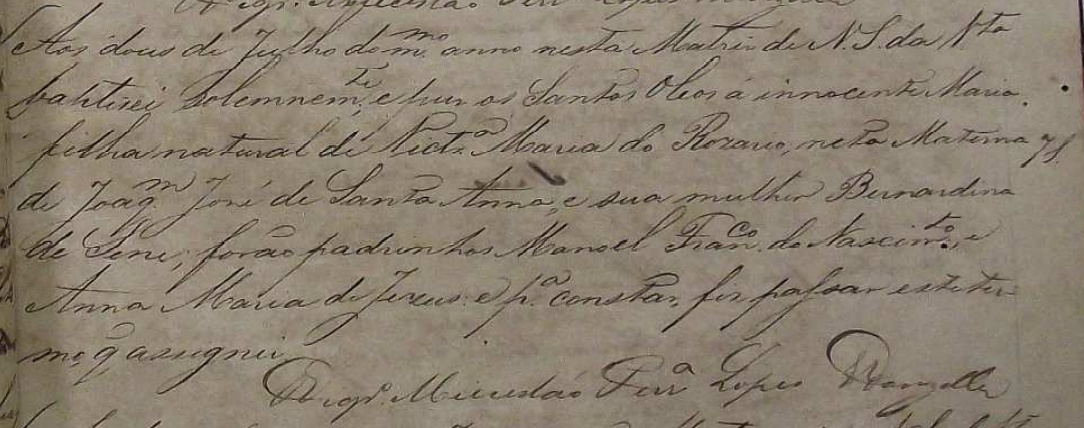 Aos dous de Julho do m.mo anno nesta Matriz de N. S. da
baptisei solemnem.te, e puz os Santos Oleos á innocente Maria,
filha natural de Vict.a Maria do Rozario, neta Materna
de Joaq.m José de Santa Anna, e sua mulher Bernardina
de Sene; forão padrinhos Manoel Fran.co do Nascim.to, e
Anna Maria de Jezus: e p.a constar, fiz passar este ter-
mo, q assignei
O Vigr.o Ferr.a Lopes